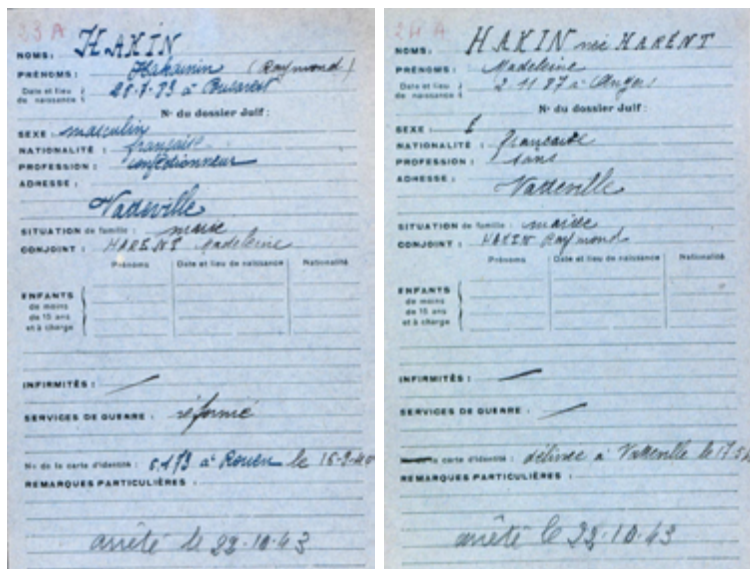 23 A
NOMS: HAKIN
PRÉNOMS: (Raymond)
Date et lieu de naissance à Bucarest
N° du dossier Juif:
SEXE: masculin
NATIONALITÉ: française
PROFESSION: confectionneur
ADRESSE:
Vatteville
SITUATION de famille: marié
CONJOINT: HARENT Madeleine
Prénoms Date et lieu de naissance Nationalité
ENFANTS
de moins
de 15 ans
et à charge
INFIRMITÉS:
SERVICES DE GUERRE: réformé
N° de la carte d'identité: à Rouen le
REMARQUES PARTICULIÈRES:
arrêté le 22.10.43
24 A
NOMS: HAKIN née HARENT
PRÉNOMS: Madeleine
Date et lieu de naissance 2.11.87 à Angers
N° du dossier Juif:
SEXE: f
NATIONALITÉ: française
PROFESSION: sans
ADRESSE:
Vatteville
SITUATION de famille: mariée
CONJOINT: HAKIN Raymond
Prénoms Date et lieu de naissance Nationalité
ENFANTS
de moins
de 15 ans
et à charge
INFIRMITÉS:
SERVICES DE GUERRE:
la carte d'identité: délivrée à Vatteville le
REMARQUES PARTICULIÈRES:
arrêté le 22.10.43